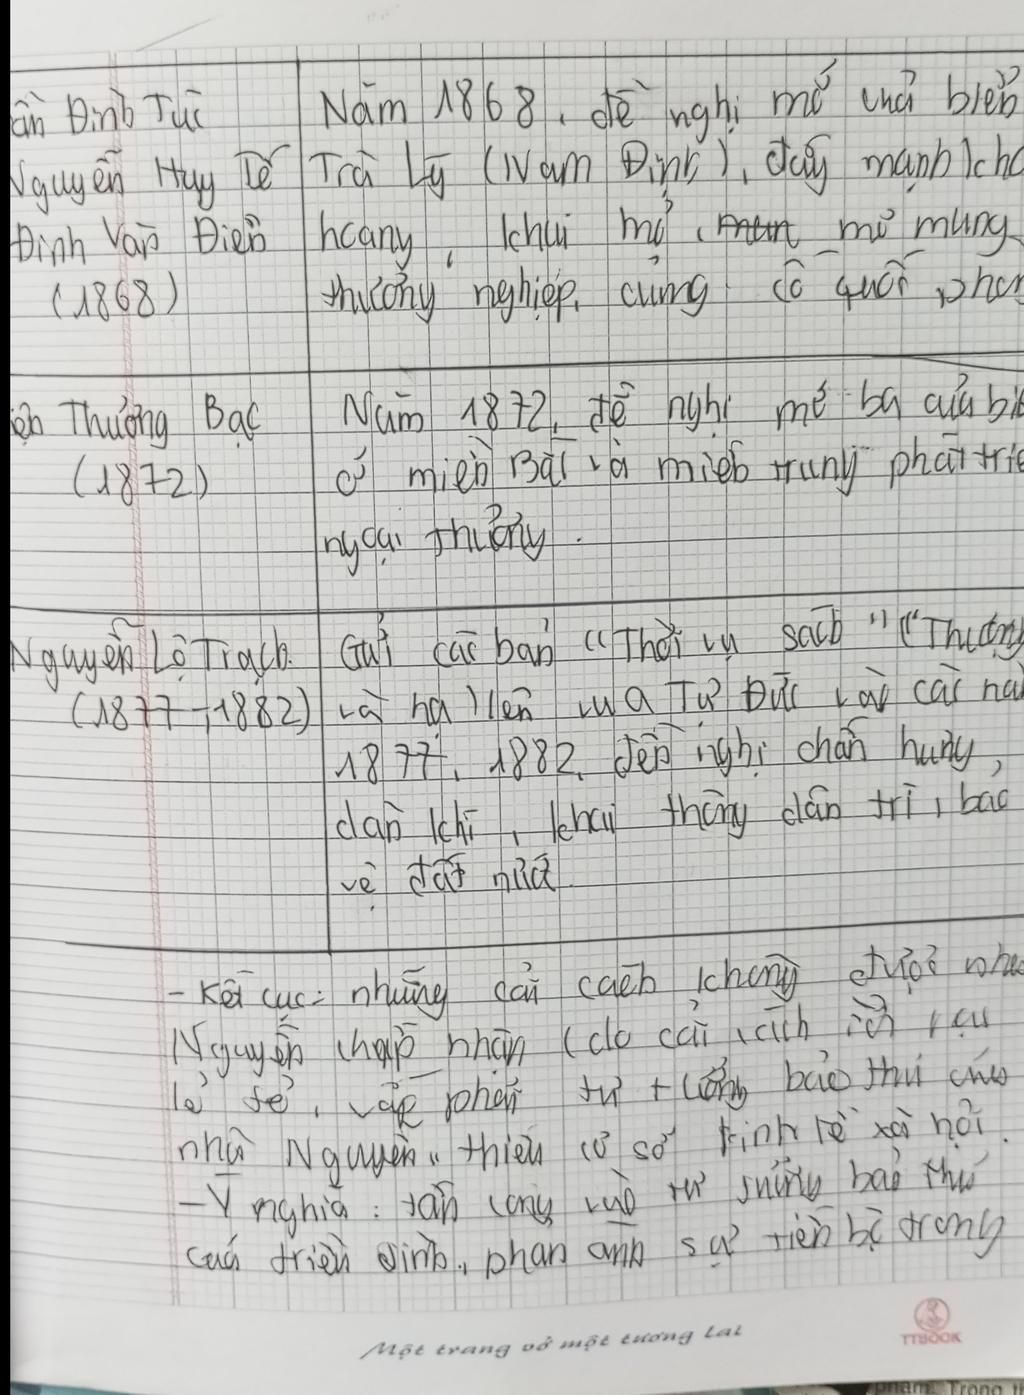 Đinh Túc
Nguyễn Huy Tế
Đinh Văn Điền
(1868)
Năm 1868, đề nghị mở cửa biển
Trà Lý (Nam Định), đẩy mạnh kh
hoang, khai mỏ, mở mang
thương nghiệp, củng cố quốc phòn
iện Thương Bạc
(1872)
Năm 1872, đề nghị mở ba cửa bi
ở miền Bắc và miền trung phát triể
ngoại thương.
Nguyễn Lộ Trạch.
(1877-1882)
Gửi các bản "Thời vụ sách" ("Thượng
và hạ) lên vua Tự Đức vào các nă
1877, 1882, đền nghị chấn hưng,
dân khí, khai thông dân trí, bảo
vệ đất nướ
- Kết cục: những cải caćh không được nhà
Nguyễn chấp nhận (do cải cách còn
lẻ tẻ, vấp phải tư tưởng bảo thủ của
nhà Nguyễn, thiếu cơ sở kinh tế xã hội.
- Ý nghĩa: tấn công vào tư tưởng bảo thủ
của triều đình, phản ánh sự tiến bộ trong
Một trang vở một tương lai
TTBOOK
Trong